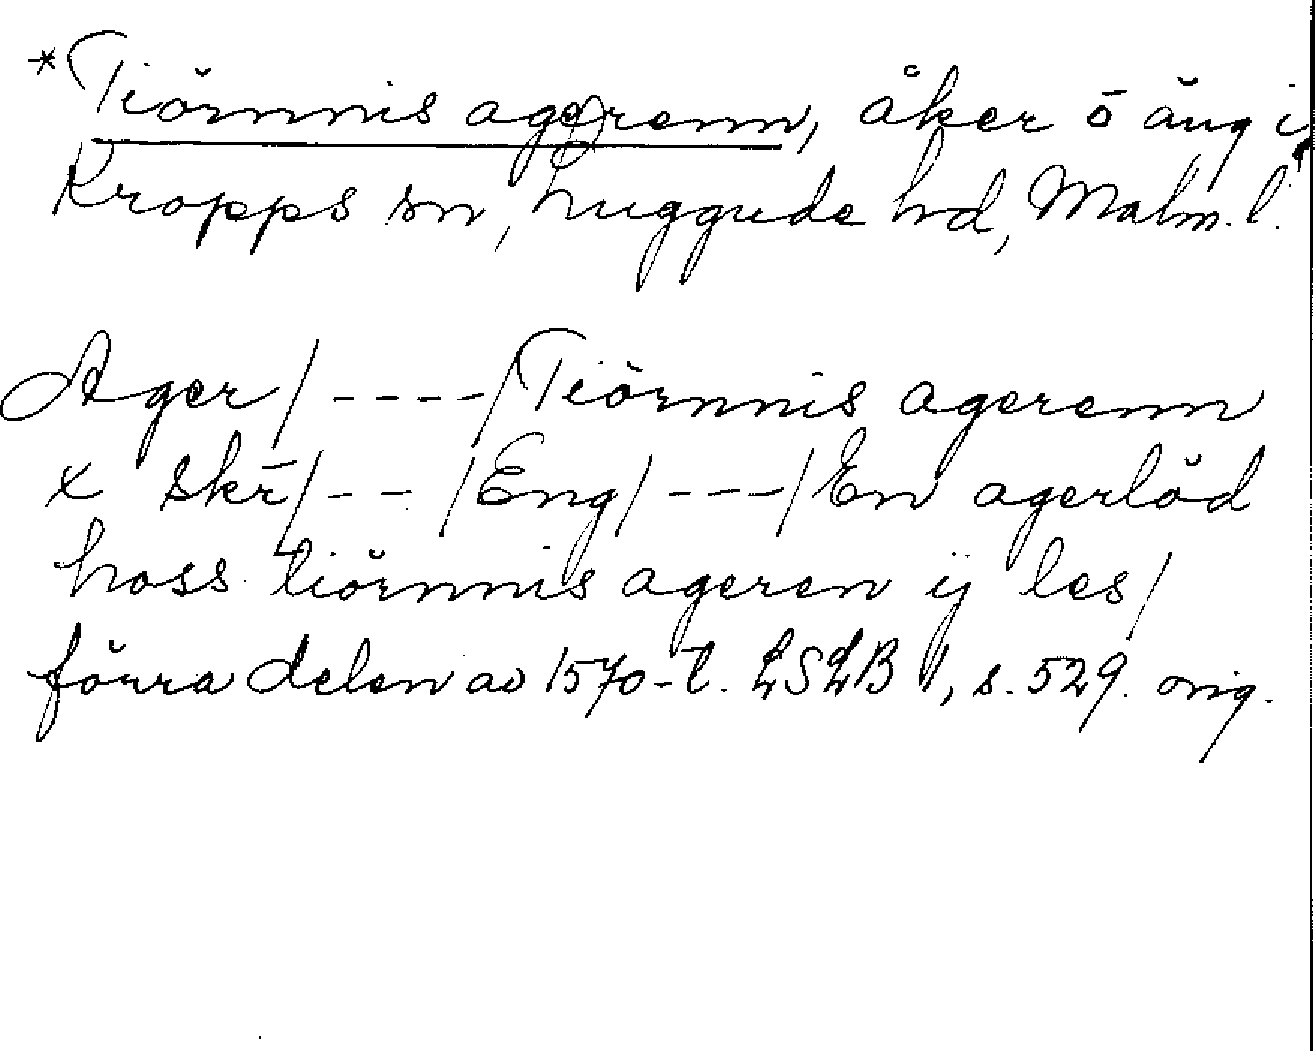 *Tiörnnis agerenn, åker o äng i
Kropps sn, Luggude hd, Malm. l.
Ager/----/Tiörnnis agerenn
x skr̄/--/Eng/---/En agerlöd
hoss tiörnnis ageren ij les/
förra delen av 1570-t. LSLB 1, s. 529. orig.